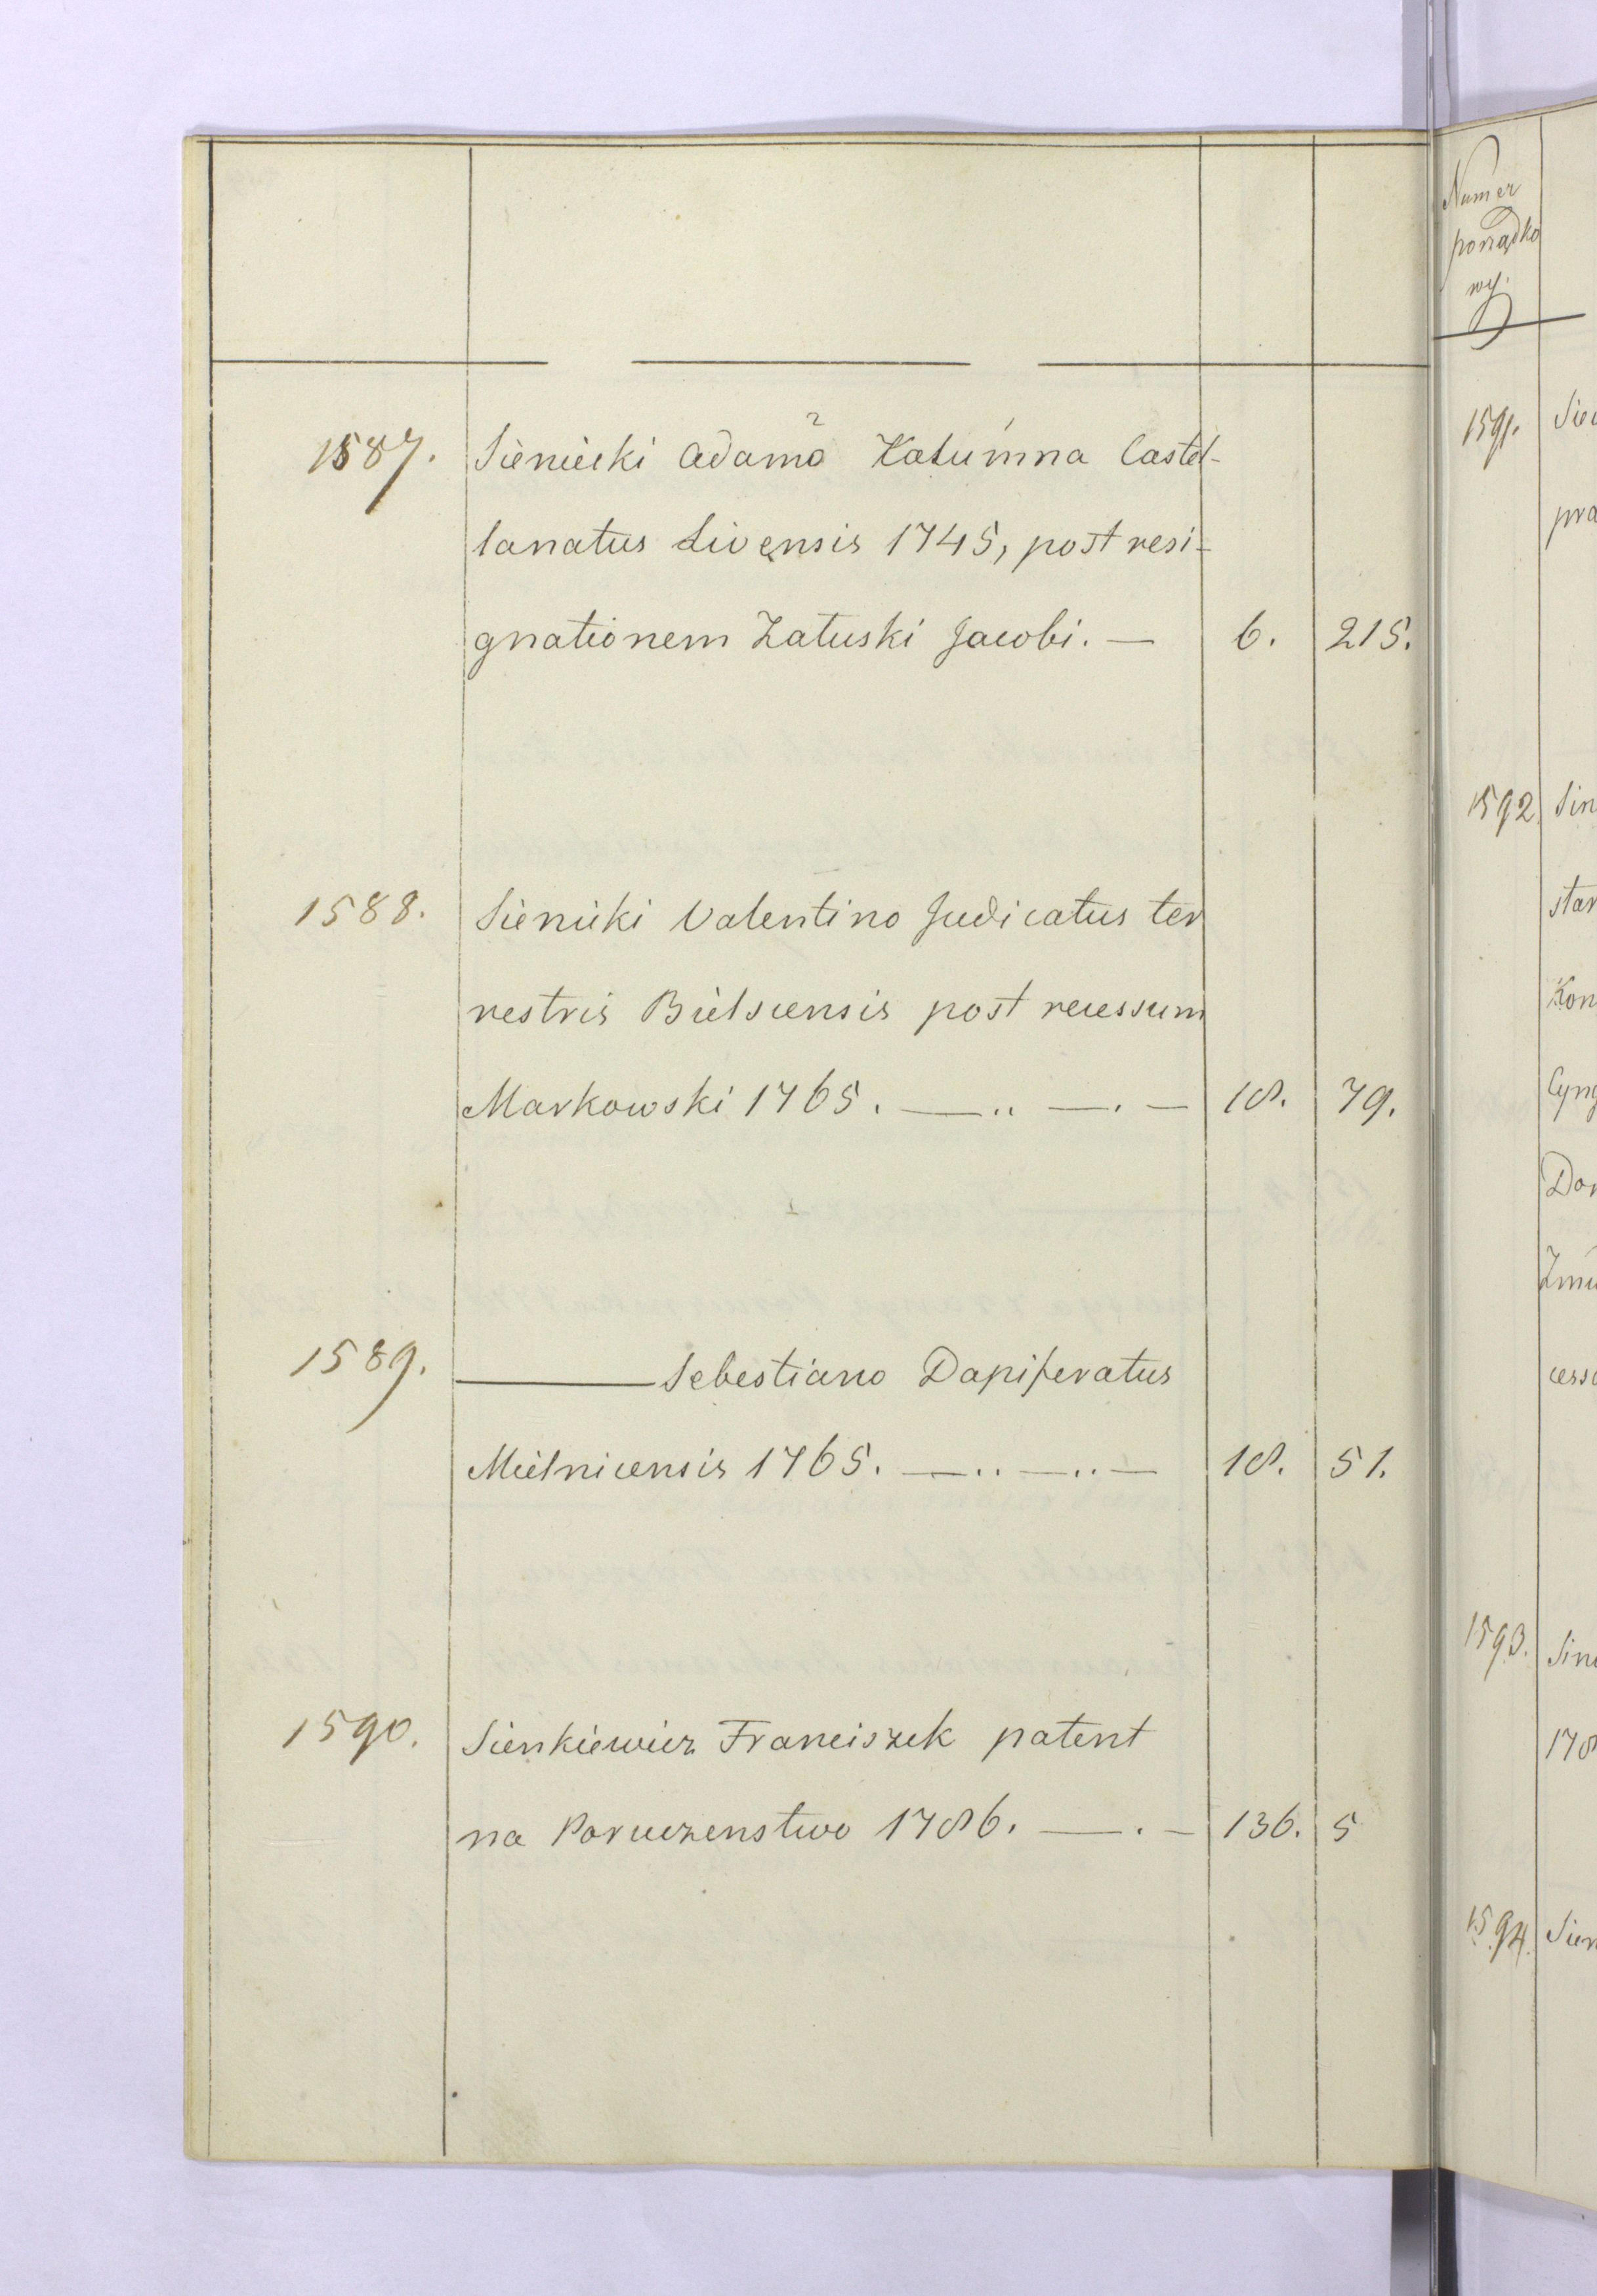 1587. Sieniecki Adamo Kałumna Castel-
lanatus Livensis 1745, post resi-
gnationem Załuski Jacobi. — 6. 215.
1588. Sienicki Valentino Judicatus ter
restris Bielscensis post recessum
Markowski 1765. —.. —. — 18. 79.
1589. ——— Sebestiano Dapiferatus
Mielnicensis 1765. —.. —.. — 18. 51.
1590. Sienkiewicz Franciszek patent
na Poruczenstwo 1786. —. — 136. 5
Numer
porządko
wy.
1591.
1592
1593.
1594.